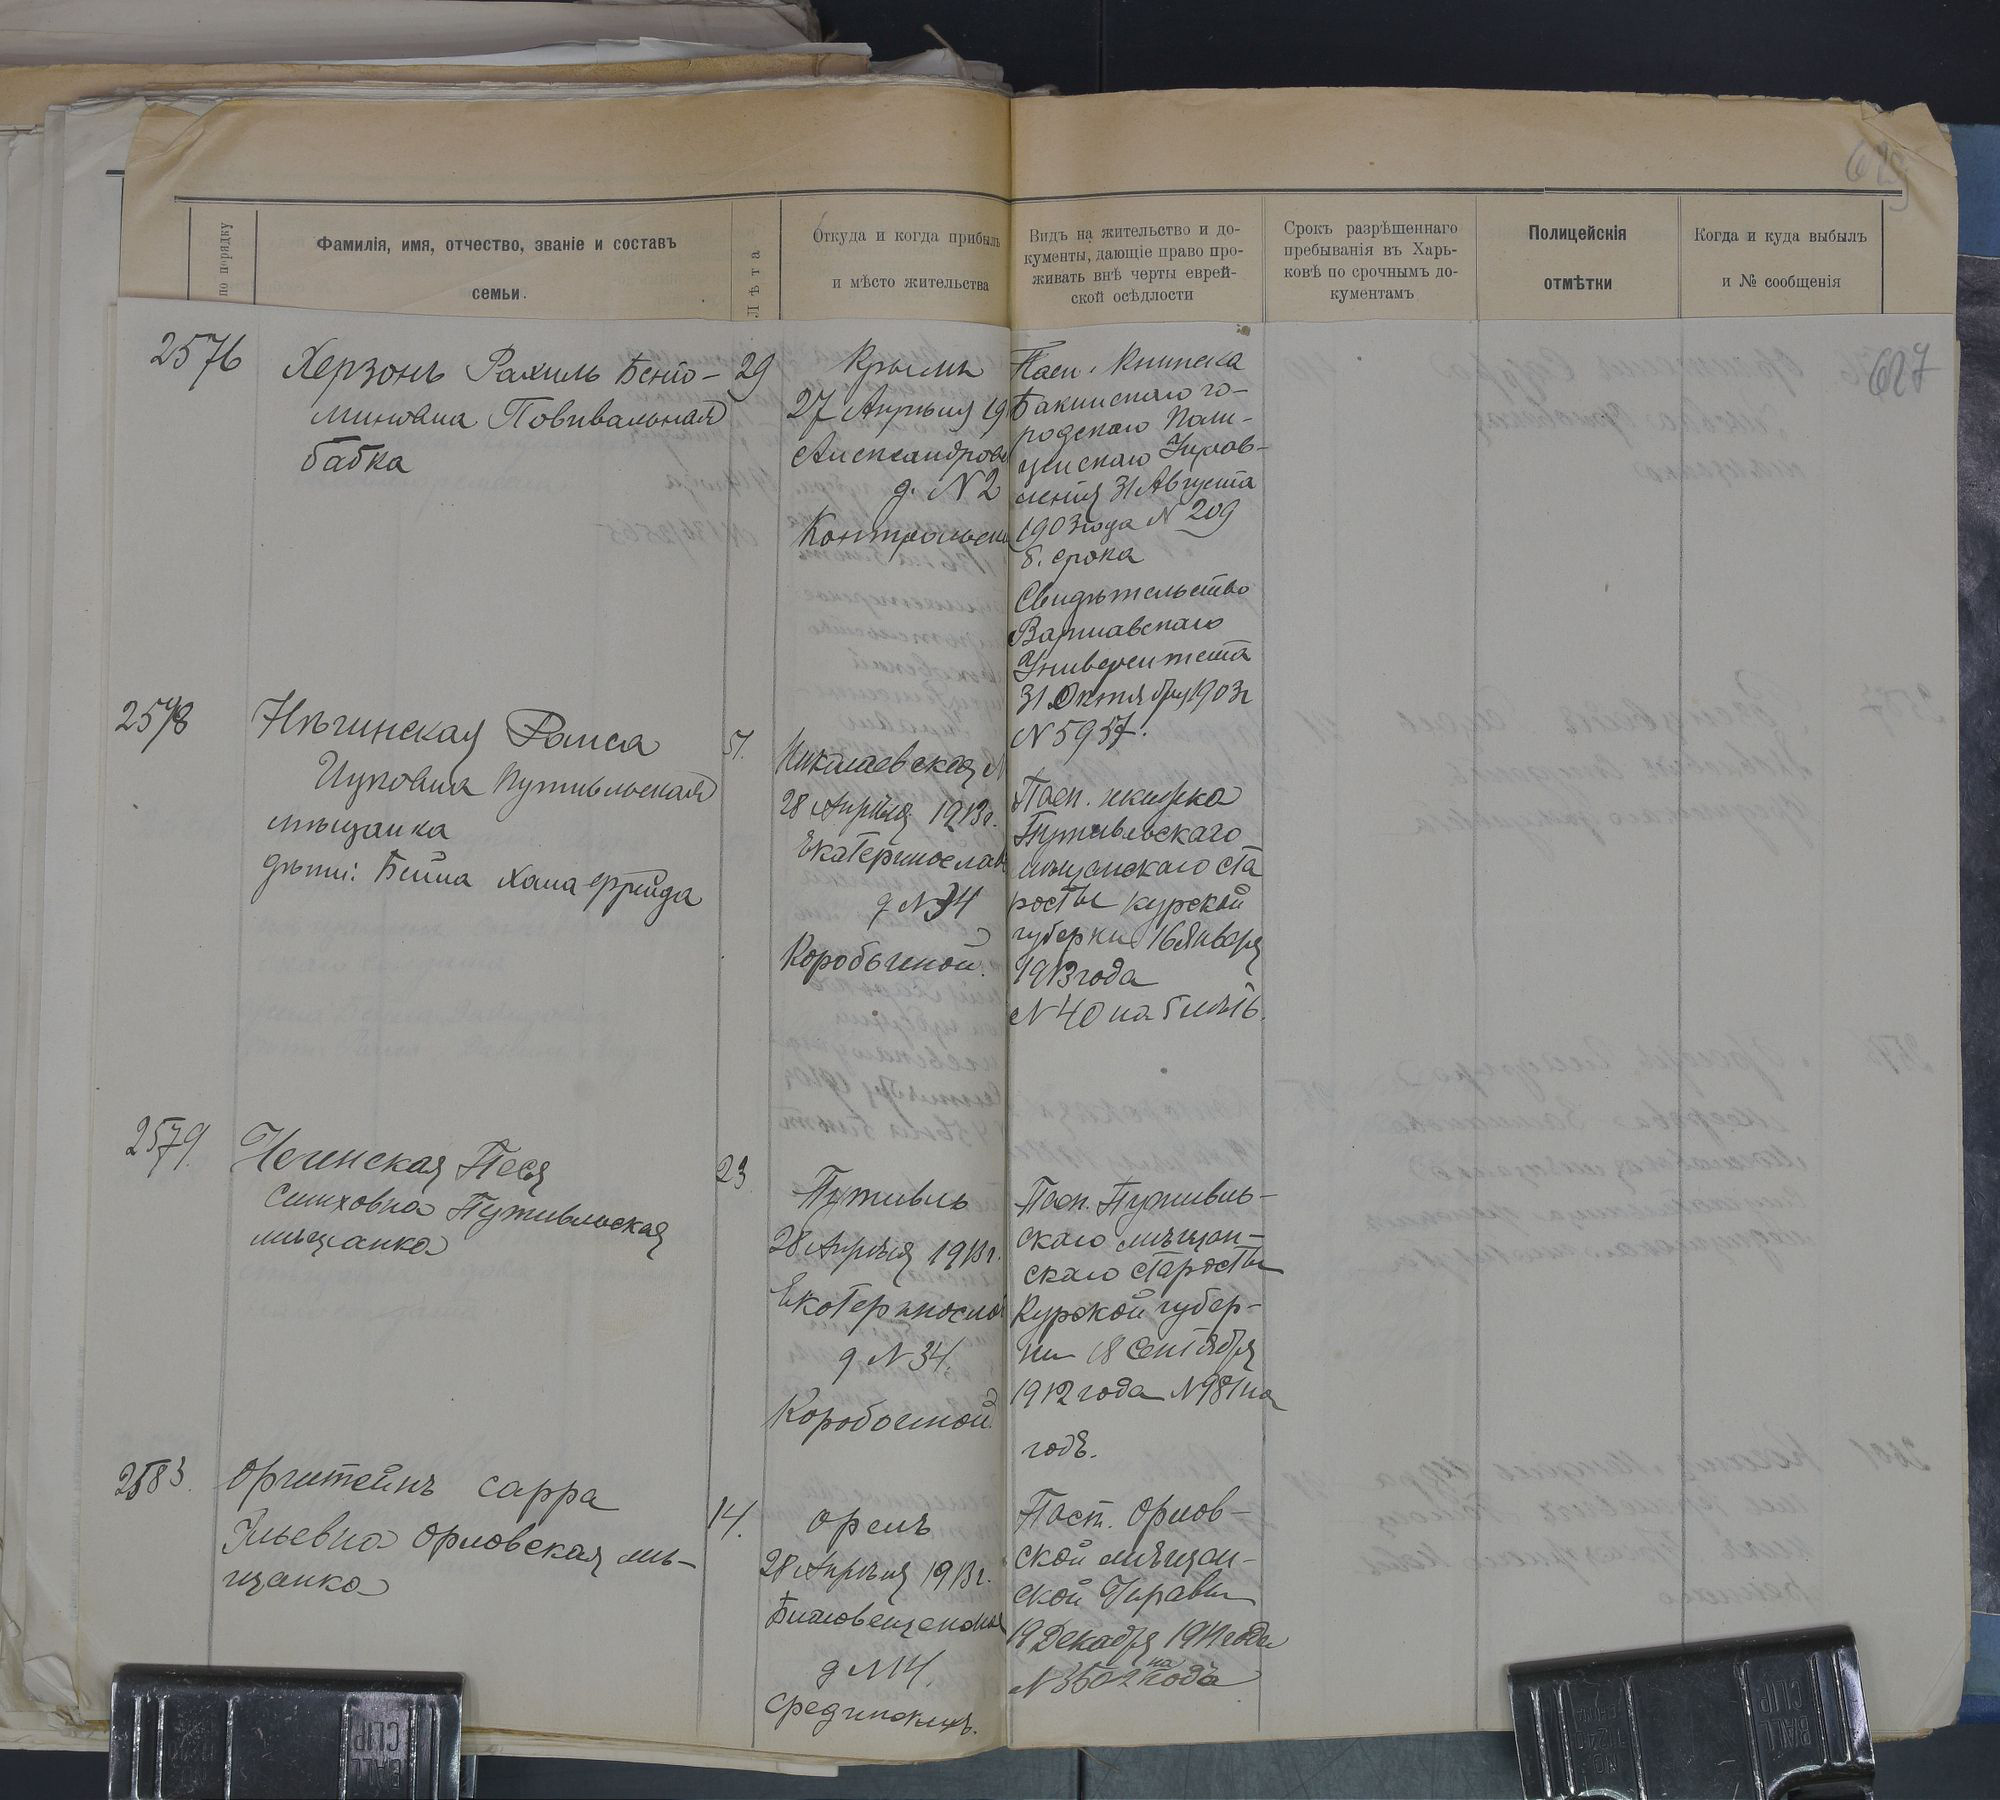 629
627
по порядку
Фамилія, имя, отчество, званіе и составъ
семьи.
Лѣта
Откуда и когда прибылъ
и мѣсто жительства
Видъ на жительство и до-
кументы, дающіе право про-
живать внѣ черты еврей-
ской осѣдлости
Срокъ разрѣшеннаго
пребыванія въ Харь-
ковѣ по срочнымъ до-
кументамъ
Полицейскія
отмѣтки
Когда и куда выбылъ
и № сообщенія
2576
Херзонъ Рахиль Бенiо-
миновна Повивальная
бабка
29
Крымъ
27 Апрѣля 19
Александров
д. N 2
Контрольск
Пасп. Книжка
Бакинскаго го-
родскаго Поли-
цейскаго Управ-
ленія 31 Августа
1903 года N 209
б. срока
Свидѣтельство
Варшавскаго
Университета
31 Октября 1903 г
N 5957.
2578
Нѣгинская Раиса
Ицковна Путивльская
мѣщанка
дѣти: Бейла Хана Фрейда
51.
Николаевская N
28 Апрѣля 1913 г.
Екатеринослав
д N 34
Коробочкой.
Пасп. книжка
Путивльскаго
мѣщанскаго ста
росты Курской
губерніи 16 Января
1913 года
N 40 на 5 лѣтъ.
2579.
Негинская Песя
Симховна Путивльская
мѣщанка
23
Путивль
28 Апрѣля 1913 г.
Екатеринослав
д N 34.
Коробочкой.
Пасп. Путивль-
скаго мѣщан-
скаго старосты
Курской губер-
ніи 18 Сентября
1912 года N 981 на
годъ.
2583.
Орштейнъ Сарра
Ильевна Орловская мѣ-
щанка
14.
Орелъ
28 Апрѣля 1913 г.
Благовещенская
д N 14.
Срединскихъ.
Пасп. Орлов-
ской мѣщан-
ской Управы
19 Декабря 1912 года
N 3502 на годъ